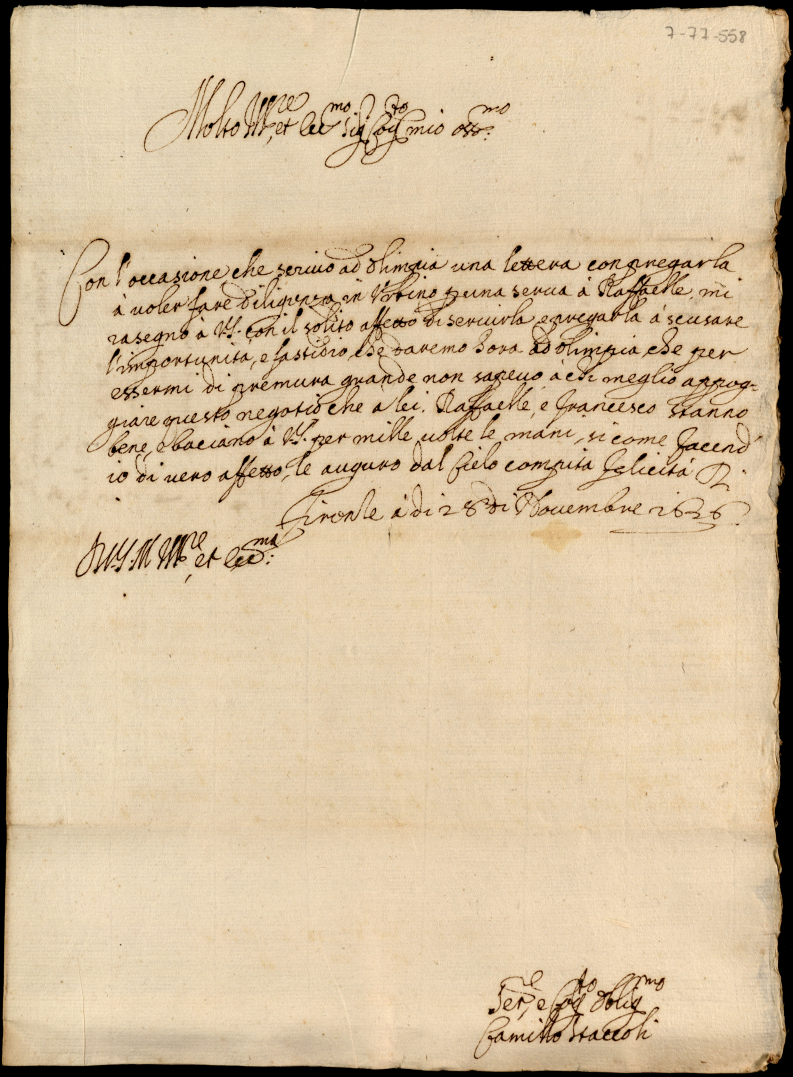 7-77-558
Molto Ill.re et ecc.mo Sig. Cog.to mio oss.mo
Con l'occasione che scrivo ad Olimpia una lettera con pregarla
à voler fare diligenza in Urbino p una serva à Raffaelle, mi
rasegno à V.S. con il solito affetto di servirla, e pregarla à scusare
l'importunita, e fastidio, che daremo hora ad Olimpia, che per
essermi di premura grande non sapevo a chi meglio appog-
giare questo negotio che a lei. Raffaelle, e Francesco stanno
bene, e baciano à V.S. per mille volte le mani, si come facend
io di vero affetto, le auguro dal Cielo compita felicità
di 28 di Novembre 1626
Di V.S. M. Ill.re et ecc.ma
Ser.re e Cog.to Oblig.mo
Camillo Staccoli